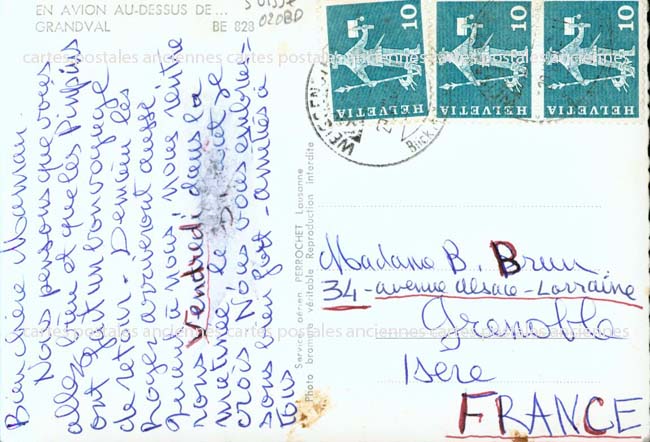 EN AVION AU-DESSUS DE...
GRANDVAL BE 828
020BD
Bien chère Maman.
Nous pensons que vous
allez bien et que les Pinpins
ont fait un bon voyage
de retour - Demieu les
Royer arriveront aussi
Quant à nous, nous rentre
rons Vendredi dans la
matinée le je
crois Nous vous embras-
sons bien fort - amitiés à
tous
Service aérien PERROCHET Lausanne
Photo bromure véritable Reproduction interdite
HELVETIA 10
HELVETIA 10
HELVETIA 10
Madame B. Brun
34 - avenue Alsace - Lorraine
Grenoble
Isère
FRANCE
cartes postales anciennes cartes postales anciennes cartes postales anciennes
cartes postales anciennes cartes postales anciennes cartes postales anciennes